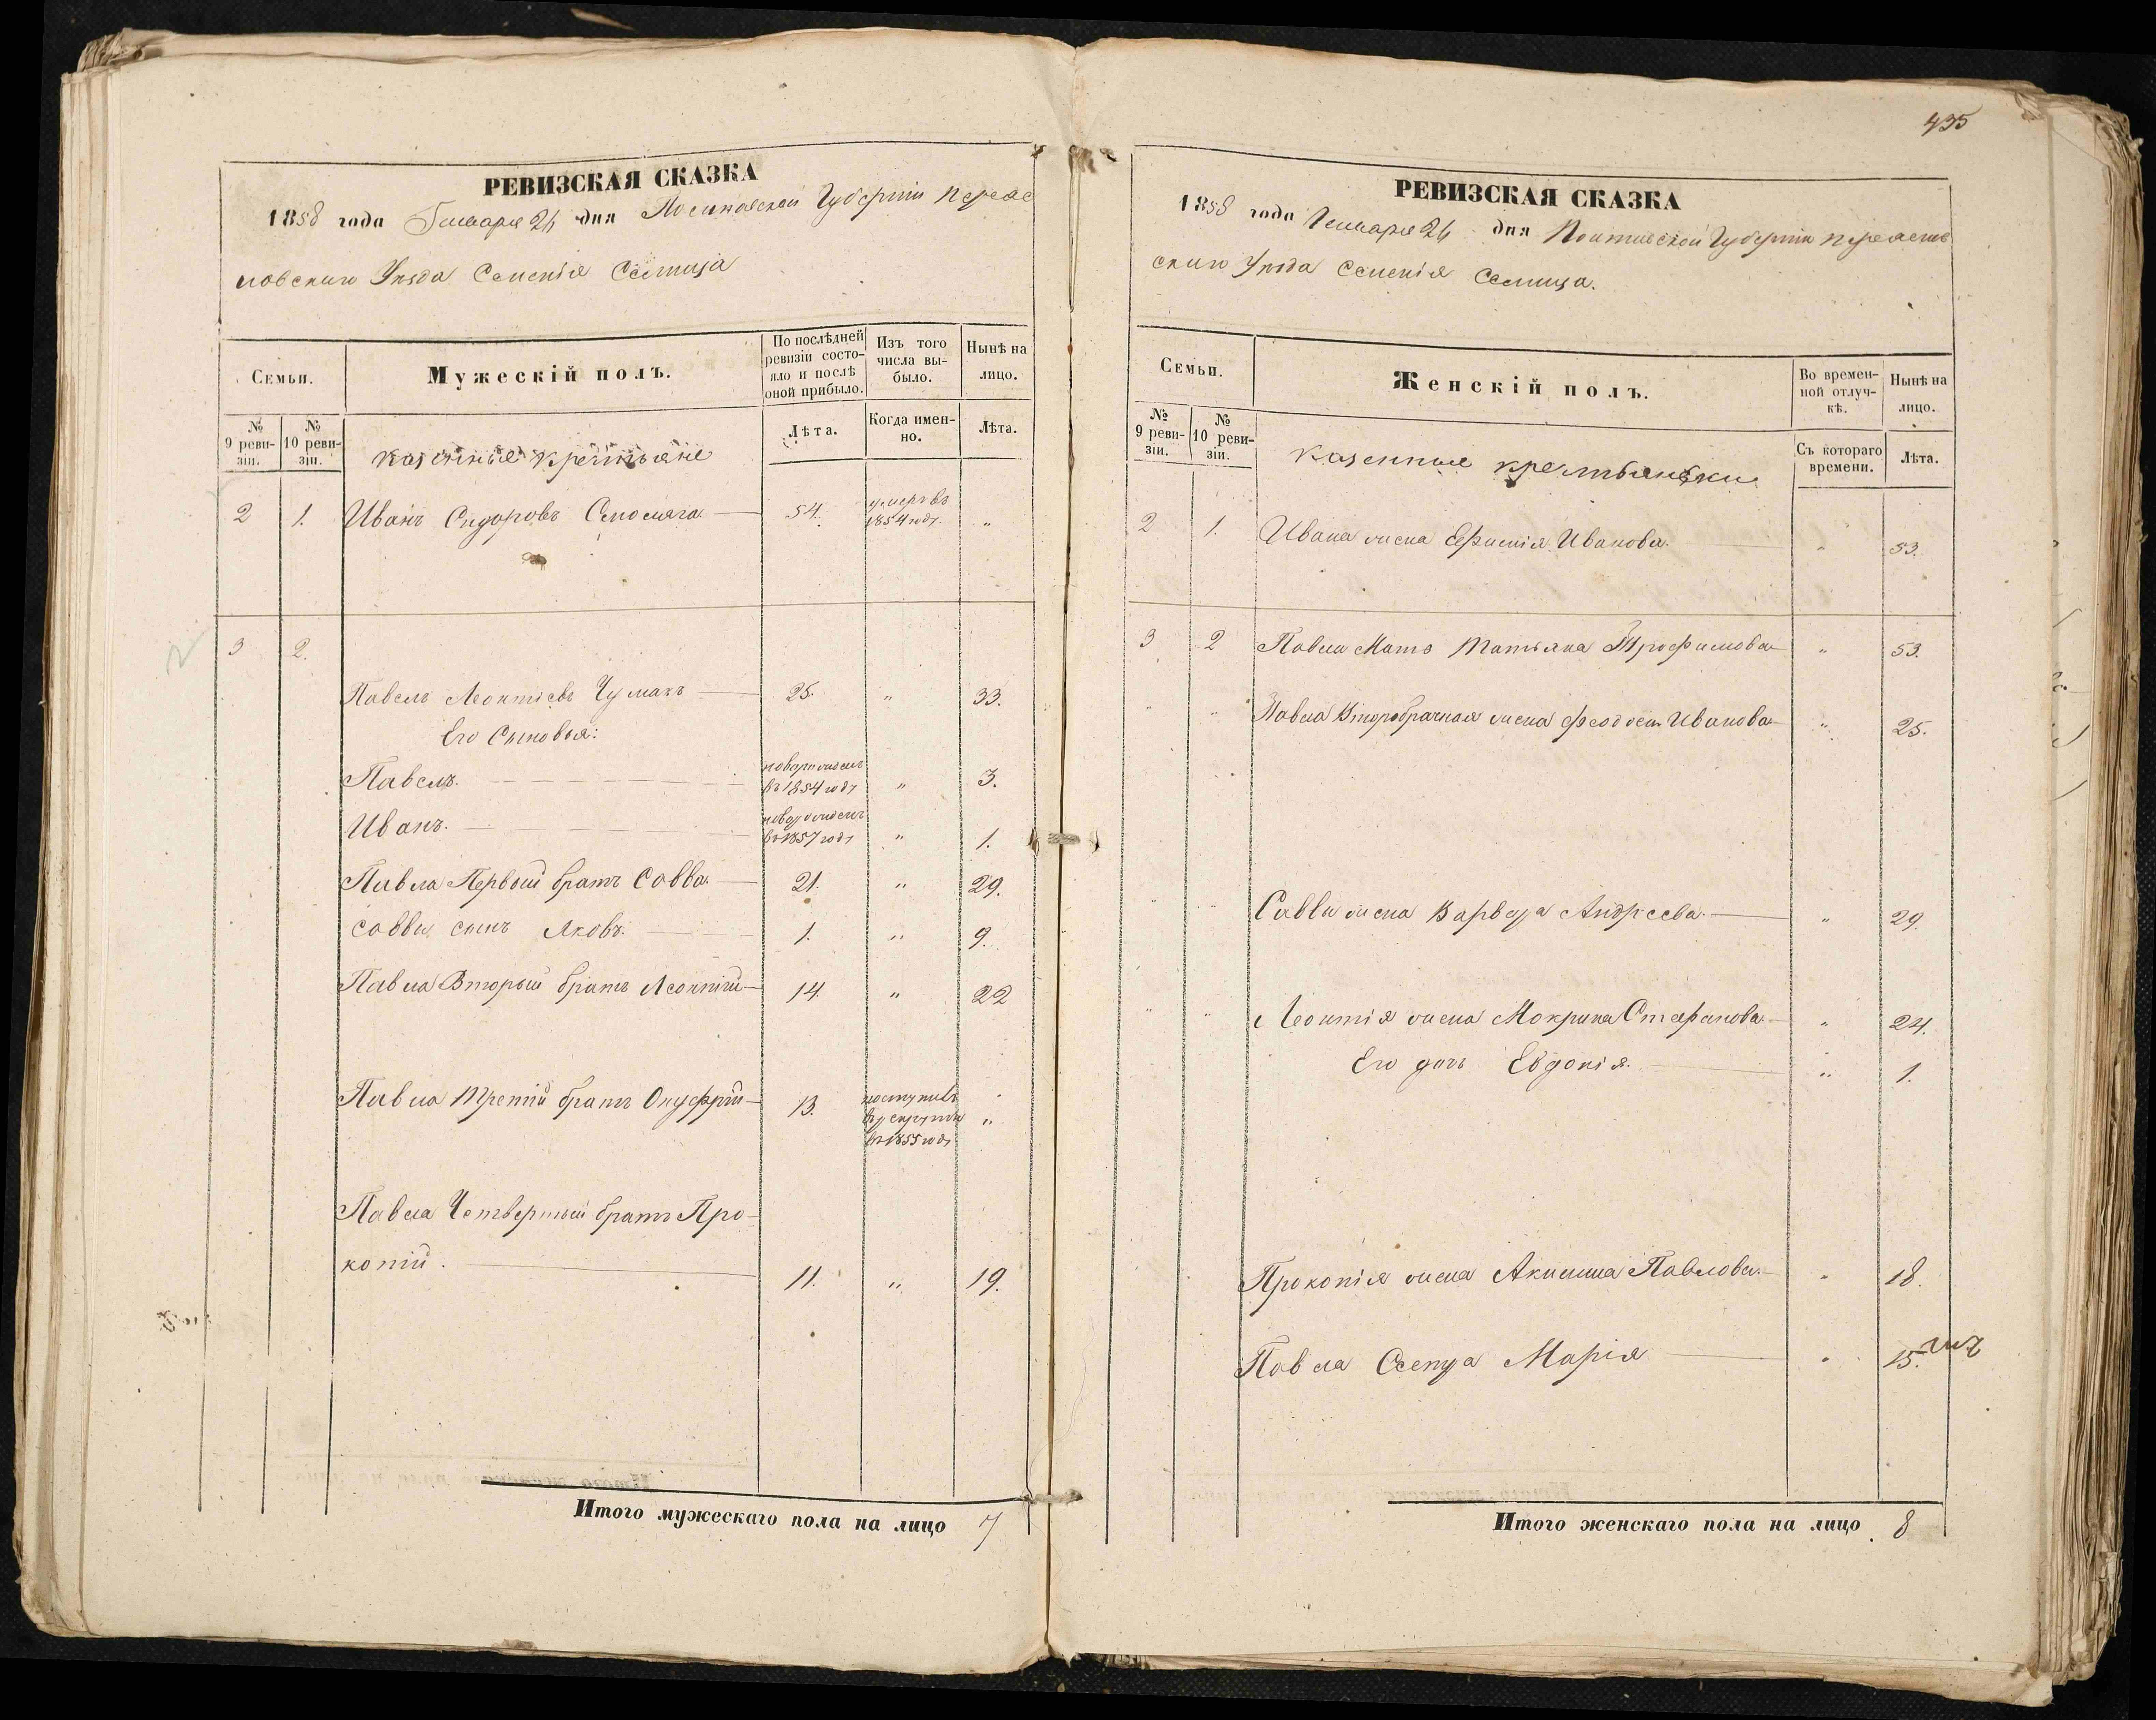 435
РЕВИЗСКАЯ СКАЗКА
1858 года Генваря 24 дня Полтавской Губерніи Переяс
ловскаго Уѣзда Селенія Селища
Семьи.
Мужескій полъ.
По послѣдней ревизіи состояло и послѣ оной прибыло.
Изъ того числа выбыло.
Нынѣ на лицо.
№ 9 ревизіи.
№ 10 ревизіи.
казенные крестьяне
Лѣта.
Когда именно.
Лѣта.
2 1. Иванъ Сидоровъ 54. умеръ въ 1854 году. "
3 2.
Павелъ Леонтіевъ Чумакъ 25. " 33.
Его Сыновья:
Павелъ. новорожденъ въ 1854 году " 3.
Иванъ. новорожденъ въ 1857 году " 1.
Павла Первый братъ Савва. 21. " 29.
Саввы сынъ Яковъ. 1. " 9.
Павла Вторый братъ Леонтій 14. " 22
Павла Третій братъ Онуфрій 13. поступилъ въ рекруты въ 1855 году "
Павла Четвертый братъ Про-
копій. 11. " 19.
Итого мужескаго пола на лицо 7
РЕВИЗСКАЯ СКАЗКА
1858 года Генваря 24 дня Полтавской Губерніи Переяслов
скаго Уѣзда Селенія Селища.
Семьи.
Женскій полъ.
Во временной отлучкѣ.
Нынѣ на лицо.
№ 9 ревизіи.
№ 10 ревизіи.
Казенные крестьянки
Съ котораго времени.
Лѣта.
2 1. Ивана жена Ефимія Иванова. " 53.
3 2 Павла Мать Татьяна Трофимова " 53.
" " Павла Второбрачная жена Феодосія Иванова " 25.
" " Саввы жена Варвара Андреева. " 29.
" " Леонтія жена Мокрина Стефанова " 24.
Его дочь Евдокія. " 1.
Прокопія жена Акилина Павлова. " 18.
Павла Сестра Марія " 15.
Итого женскаго пола на лицо 8